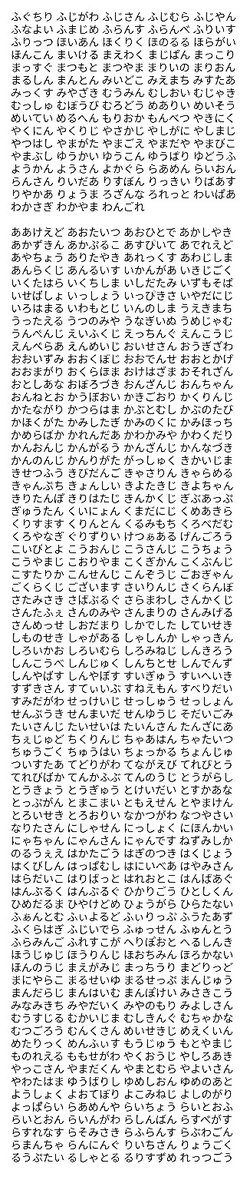 ふぐちり ふじがわ ふじさん ふじむら ふじやん
ふなよい ふまじめ ふらんす ふらんべ ふりいす
ふりっつ ほいあん ほくりく ほのるる ほらがい
ほんこん まいける まえわく まじぱん まっこり
まっすぐ まつもと まつやま まりいの まりおん
まるしん まんとん みいどこ みえまち みすたあ
みっくす みやざき むうみん むしおい むじゃき
むっしゅ むぼうび むろどう めありい めいそう
めいてい めるへん もりおか もんべつ やきにく
やくにん やくりじ やさかじ やしがに やしまじ
やつはし やまがた やまごえ やまだや やまびこ
やまぶし ゆうかい ゆうこん ゆうばり ゆどうふ
ようかん ようさん よかぐら らあめん らいおん
らんさん りいだあ りすぼん りっきい りばあす
りやかあ りょうま ろざんな ろれっと わいぱあ
わかさぎ わかやま わんごれ

ああけえど あおたいつ あおひとで あかしやき
あかずきん あかぶるこ あすぴいて あでれえど
あやちょう ありたやき あれっくす あわじしま
あんらくじ あんるいす いかんがあ いきじごく
いくたはら いくちしま いしだたみ いずもそば
いせばしょ いっしょう いっぴきさ いやだにじ
いろはまる いわもとじ いんのしま うえきまち
うったえる うつのみや うなぎいぬ うめじゃむ
うんぺんじ えいふくじ えっちんぐ えんこうじ
えんぺらあ えんめいじ おいせさん おうぎざわ
おおいずみ おおくぼじ おおでんせ おおとかげ
おおまがり おくらほま おけはざま おそれざん
おとしあな おぼろづき おんざんじ おんちゃん
おんねとお かうぼおい かきごおり かくりんじ
かたながり かつらはま かぶとむし かぶのたび
かほくがた かみしたぎ かみのくに かみほっち
かめらばか かれんだあ かわかみや かわくだり
かんおんじ かんがるう かんざんじ かんなづき
かんのんじ かんりがた がっしゅく きかいじま
きせつふう きびだんご きゃさりん きゃらめる
きゃんぶち きょんしい きよたきじ きよちゃん
きりたんぽ きりはたじ きんかくじ ぎぶあっぷ
ぎゅうたん くいにょん くまだにじ くめあきら
くりすます くりんとん くるみもち くろべだむ
くろやなぎ ぐりずりい けつぁある げんごろう
こいびとよ こうおんじ こうさんじ こうちょう
こうやまじ こおりやま こくぎかん こくぶんじ
こすたりか こんせんじ こんぞうじ ごおぎゃん
ごくらくじ ございます さいりんじ さくらんぼ
さたみさき さばぶるぐ さらまわし さんかくじ
さんたふぇ さんのみや さんまりの さんみげる
さんめっせ しおだまり しかでした していせき
しものせき しゃがある しゃしんか しゃっきん
しろいかお しろいむら しろみねじ しんきろう
しんこうべ しんじゅく しんちとせ しんでんず
しんやばす しんやぼす すいぎゅう すいへいき
すずきさん すてぃいぶ すねえもん すべりだい
すみだがわ せっけいじ せっしゅう せっしょん
せんぶうき せんまいだ せんゆうじ そだいごみ
たいさんじ たいせいほ たいんさん たんごにあ
ちぇじゅど ちくりんじ ちゃあはん ちゃたいつ
ちゅうごく ちゅうはい ちょっかる ちょんじゅ
ついすたあ てどりがわ てながえび てれびとう
てれびばか てんかふぶ てんのうじ とうがらし
とうきょう とうぎゅう とけいだい とすかあな
とっぷがん とまこまい ともえせん とやまけん
とろいせき とろおりい なかつがわ なつやさい
なりたさん にしゃせん にっしょく にほんかい
にゃちゃん にゃんさん にゃんです ねずみしか
のるうぇえ はかたごう はぎのつき はくじょう
はくびしん はっぱむし はにいべあ はやみさん
はらだいこ はりぱっと はれおとこ はんばあぐ
はんぶるく はんぶるぐ ひかりごう ひとしくん
ひめだるま ひやけどめ ひょうがら ひらたない
ふぁんとむ ふいよるど ふぃりっぷ ふうたあず
ふくらはぎ ふじいでら ふゅっせん ふゅんとう
ふらみんご ふれすこが へりぽおと へるしんき
ほうじゅじ ほうりんじ ほおちみん ほろかない
ほんのうじ まえがみじ まっちうり まどりっど
まにやらこ まるせいゆ まるせっぷ まんじゅう
まんだらじ まんはいむ まんぼけい みさきこう
みなみきち みやだいく みやのもり みよしさん
むうすじる むかいじま むしきんぐ むちゃかな
むつごろう むんくさん めいせきじ めえくいん
めたりっく めんふぃす もうじゅう もとやまじ
ものれえる ももせがわ やくおうじ やしろあき
やっこさん やまだくん やまとむら やよいさん
やわたはま ゆうばりし ゆめしおん ゆめのあと
ようしょく よおてぼり よこみねじ よしのがり
よっぱらい らあめんや らいちょう らいとおふ
らいとおん らいんがわ らしんばん らすべがす
らすれなす らそみさき らふらんす らぷわごん
らまんちゃ らんにんぐ りいちさん りょうごく
るうぶたい るしゃとる るりすずめ れっつごう